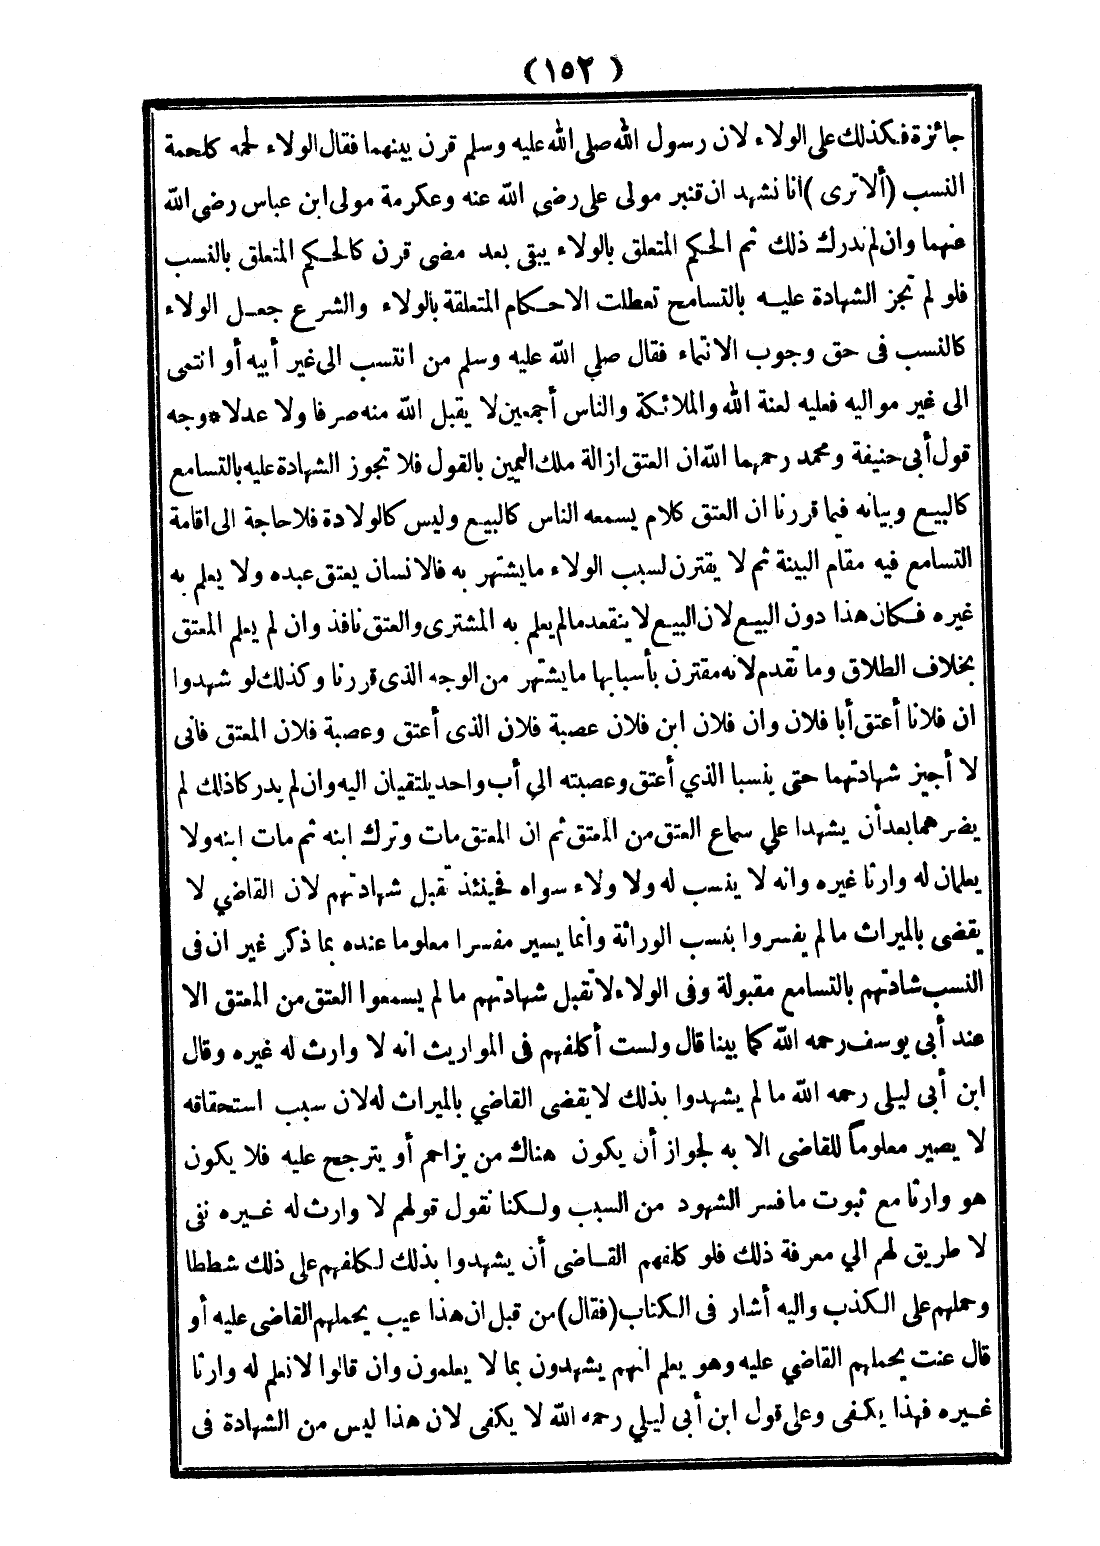 (١٥٢)
جائزة فكذلك على الولاء لان رسول الله صلى الله عليه وسلم قرن بينهما فقال الولاء لحمه كلحمة
النسب (ألا ترى) انا نشهد ان قنبر مولى على رضي الله عنه وعكرمة مولى ابن عباس رضي الله
عنهما وان لم ندرك ذلك ثم الحكم المتعلق بالولاء يبقى بعد مضى قرن كالحكم المتعلق بالنسب
فلو لم تجز الشهادة عليه بالتسامح تعطلت الاحكام المتعلقة بالولاء والشرع جعل الولاء
كالنسب فى حق وجوب الانتماء فقال صلي الله عليه وسلم من انتسب الى غير أبيه أو انتمى
الى غير مواليه فعليه لعنة الله والملائكة والناس أجمعين لا يقبل الله منه صرفا ولا عدلا * وجه
قول أبى حنيفة ومحمد رحمهما الله ان العتق ازالة ملك اليمين بالقول فلا تجوز الشهادة عليه بالتسامع
كالبيع وبيانه فيما قررنا ان العتق كلام يسمعه الناس كالبيع وليس كالولادة فلا حاجة الى اقامة
التسامع فيه مقام البينة ثم لا يقترن لسبب الولاء ما يشتهر به فالانسان يعتق عبده ولا يعلم به
غيره فكان هذا دون البيع لان البيع لا ينقعد مالم يعلم به المشترى والعتق نافذ وان لم يعلم المعتق
بخلاف الطلاق وما تقدم لانه مقترن بأسبابها ما يشتهر من الوجه الذى قررنا وكذلك لو شهدوا
ان فلانا أعتق أبا فلان وان فلان ابن فلان عصبة فلان الذى أعتق وعصبة فلان المعتق فانى
لا أجيز شهادتهما حتى ينسبا الذي أعتق وعصبته الي أب واحد يلتقيان اليه وان لم يدركا ذلك لم
يضرهما بعد أن يشهدا علي سماع العتق من المعتق ثم ان المعتق مات وترك ابنه ثم مات ابنه ولا
يعلمان له وارثا غيره وانه لا ينسب له ولا ولاء سواه فحينئذ تقبل شهادتهم لان القاضي لا
يقضى بالميراث مالم يفسروا بنسب الوراثة وانما يسير مفسرا معلوما عنده بما ذكر غير ان فى
النسب شادتهم بالتسامع مقبولة وفى الولاء لا تقبل شهادتهم ما لم يسمعوا العتق من المعتق الا
عند أبى يوسف رحمه الله كما بينا قال ولست أكلفهم فى المواريث انه لا وارث له غيره وقال
ابن أبى ليلى رحمه الله مالم يشهدوا بذلك لا يقضى القاضي بالميراث له لان سبب استحقاقه
لا يصير معلوماً للقاضى الا به لجواز أن يكون هناك من يزاحم أو يترجح عليه فلا يكون
هو وارثا مع ثبوت ما فسر الشهود من السبب ولكنا نقول قولهم لا وارث له غيره نفى
لا طريق لهم الي معرفة ذلك فلو كلفهم القاضى أن يشهدوا بذلك لكلفهم على ذلك شططا
وحملهم على الكذب واليه أشار فى الكتاب (فقال) من قبل ان هذا عيب يحملهم القاضى عليه أو
قال عنت يحملهم القاضي عليه وهو يعلم انهم يشهدون بما لا يعلمون وان قالوا لا نعلم له وارثا
غيره فهذا يكفى وعلى قول ابن أبى ليلي رحمه الله لا يكفى لان هذا ليس من الشهادة فى